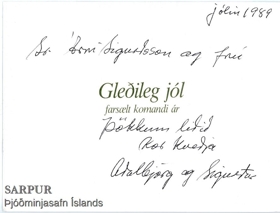 jólin 1989
Sr. Árni Sigurðsson og frú
Gleðileg jól
farsælt komandi ár
Þökkum liðið
Aðalbjörg og Sigurður
SARPUR
Þjóðminjasafn Íslands